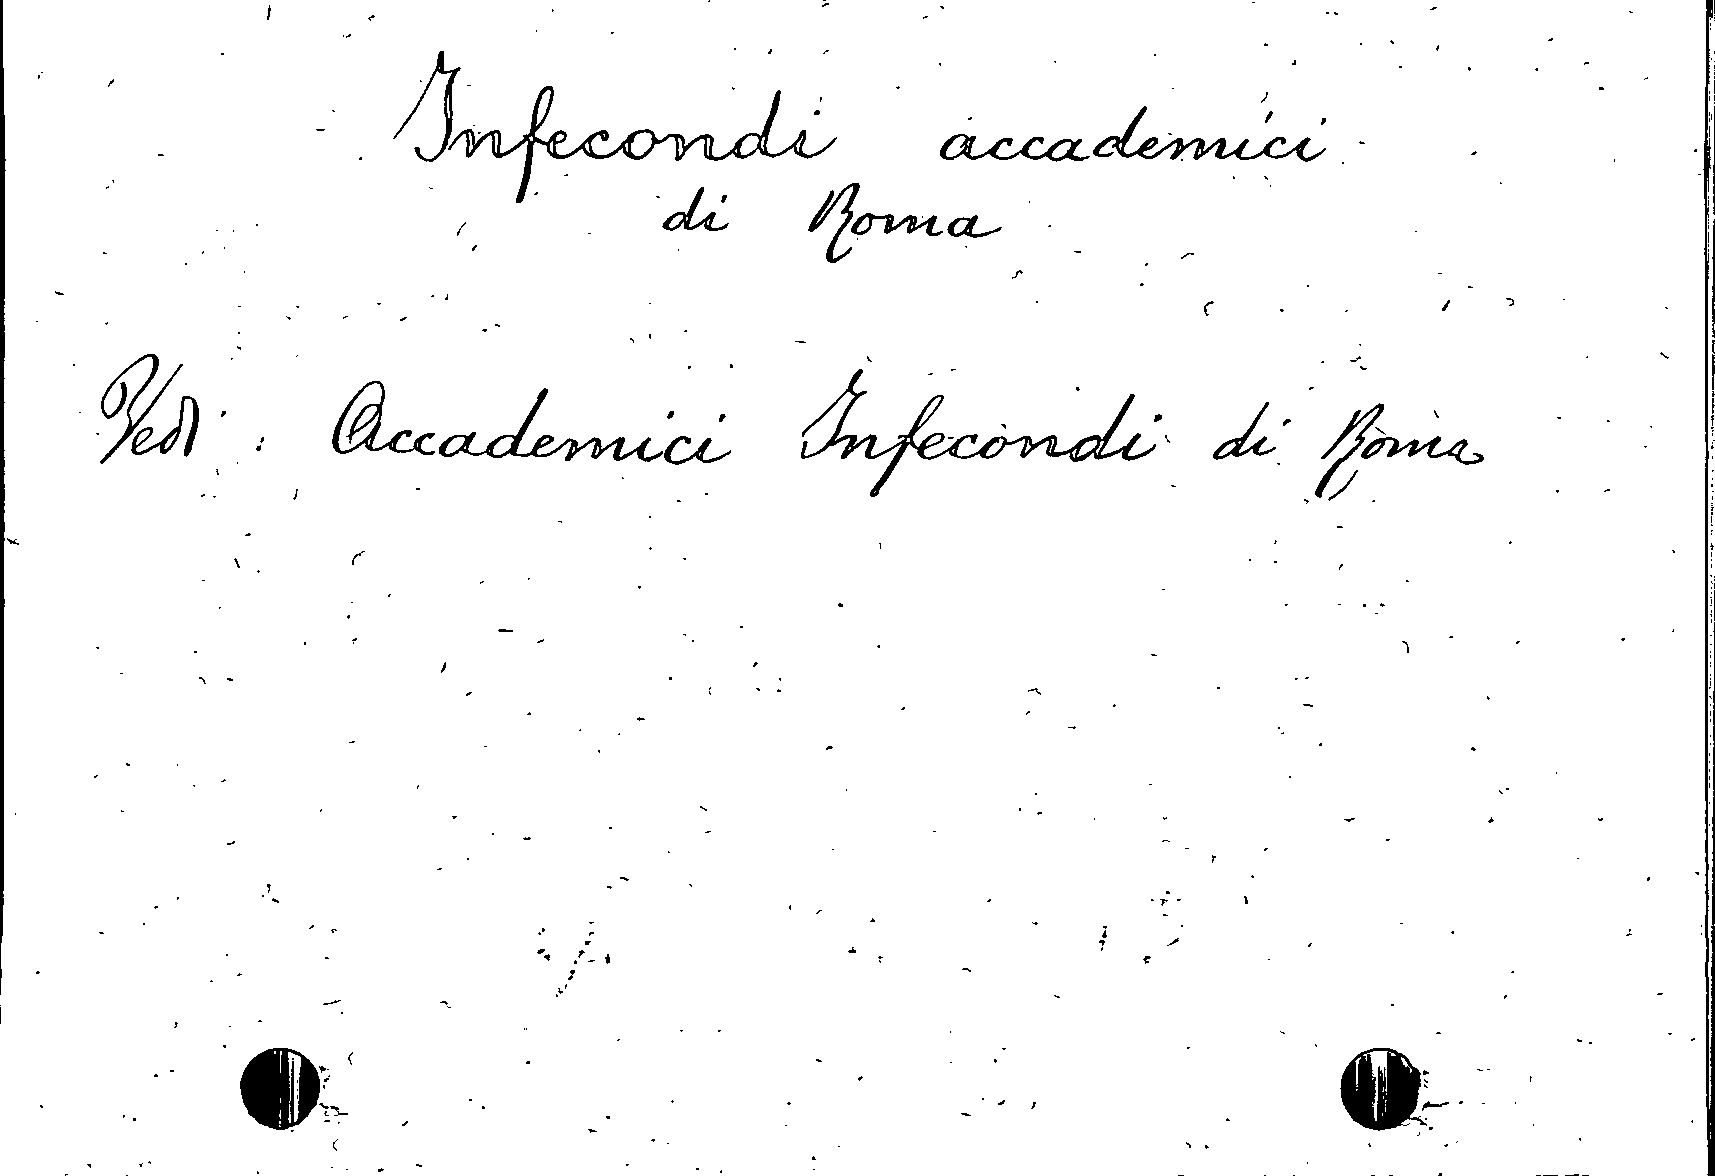 Infecondi accademici
di Roma
Vedi : Accademici Infecondi di Roma